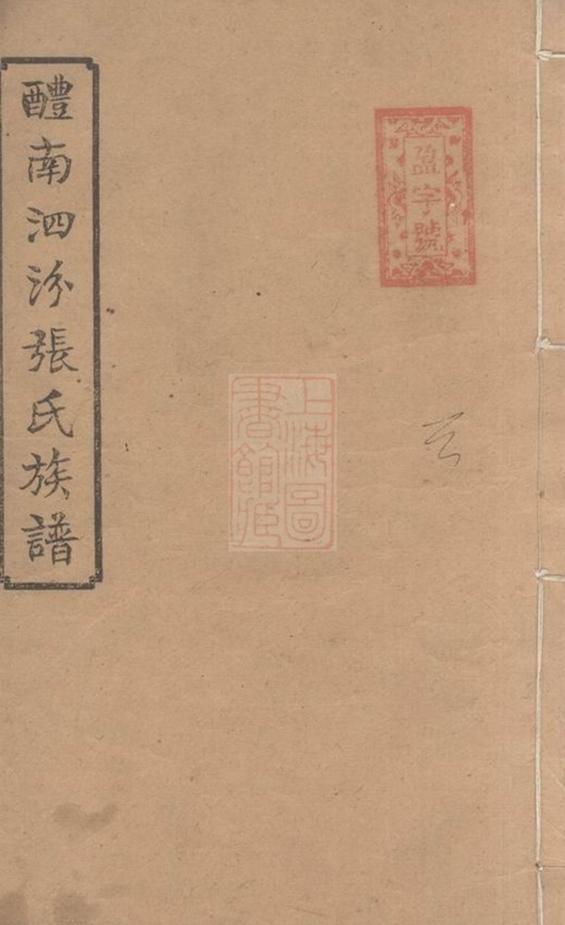 醴南泗汾張氏族譜
盈字號
上海圖
書館藏